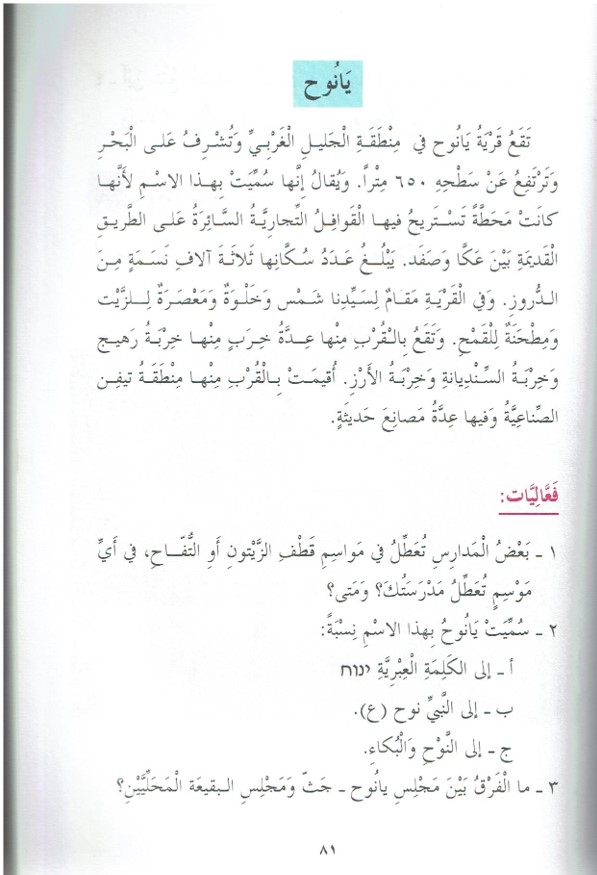 يَانُوح
تَقَعُ قَرْيَةُ يَانُوح في مِنْطَقَةِ الْجَليلِ الْغَرْبِيِّ وَتُشْرِفُ عَلى الْبَحْرِ
وَتَرْتَفِعُ عَنْ سَطْحِهِ ٦٥٠ مِتْراً. وَيُقالُ إِنَّها سُمِّيَتْ بِهذا الاسْمِ لأَنَّها
كانَتْ مَحَطَّةً تَسْتَريحُ فيها الْقَوافِلُ التِّجارِيَّةُ السَّائِرَةُ عَلى الطَّريقِ
الْقَديمَةِ بَيْنَ عَكّا وَصَفَد. يَبْلُغُ عَدَدُ سُكَّانِها ثَلاثَةَ آلافِ نَسَمَةٍ مِنَ
الدُّروزِ. وَفي الْقَرْيَةِ مَقامٌ لِسَيِّدِنا شَمْس وَخَلْوَةٌ وَمَعْصَرَةٌ لِلزَّيْت
وَمِطْحَنَةٌ لِلْقَمْحِ. وَتَقَعُ بِالْقُرْبِ مِنْها عِدَّةُ خِرَبٍ مِنْها خِرْبَةُ رَهيج
وَخِرْبَةُ السِّنْدِيانَةِ وَخِرْبَةُ الأَرْزِ. أُقيمَتْ بِالْقُرْبِ مِنْها مِنْطَقَةُ تيفِن
الصِّناعِيَّةُ وَفيها عِدَّةُ مَصانِعَ حَديثَةٍ.
فَعَّالِيَّات:
١ - بَعْضُ الْمَدارِسِ تُعَطِّلُ في مَواسِمِ قَطْفِ الزَّيْتونِ أَوِ التُّفّاحِ، في أَيِّ
مَوْسِمٍ تُعَطِّلُ مَدْرَسَتُكَ؟ وَمَتى؟
٢ - سُمِّيَتْ يَانُوحُ بِهذا الاسْمِ نِسْبَةً:
أ - إلى الكَلِمَةِ الْعِبْرِيَّةِ ינוח
ب - إلى النَّبِيِّ نوح (ع).
ج - إلى النَّوْحِ وَالْبُكاءِ.
٣ - ما الْفَرْقُ بَيْنَ مَجْلِسِ يانُوح - جَثّ وَمَجْلِسِ البقيعَة الْمَحَلِّيَّيْنِ؟
٨١